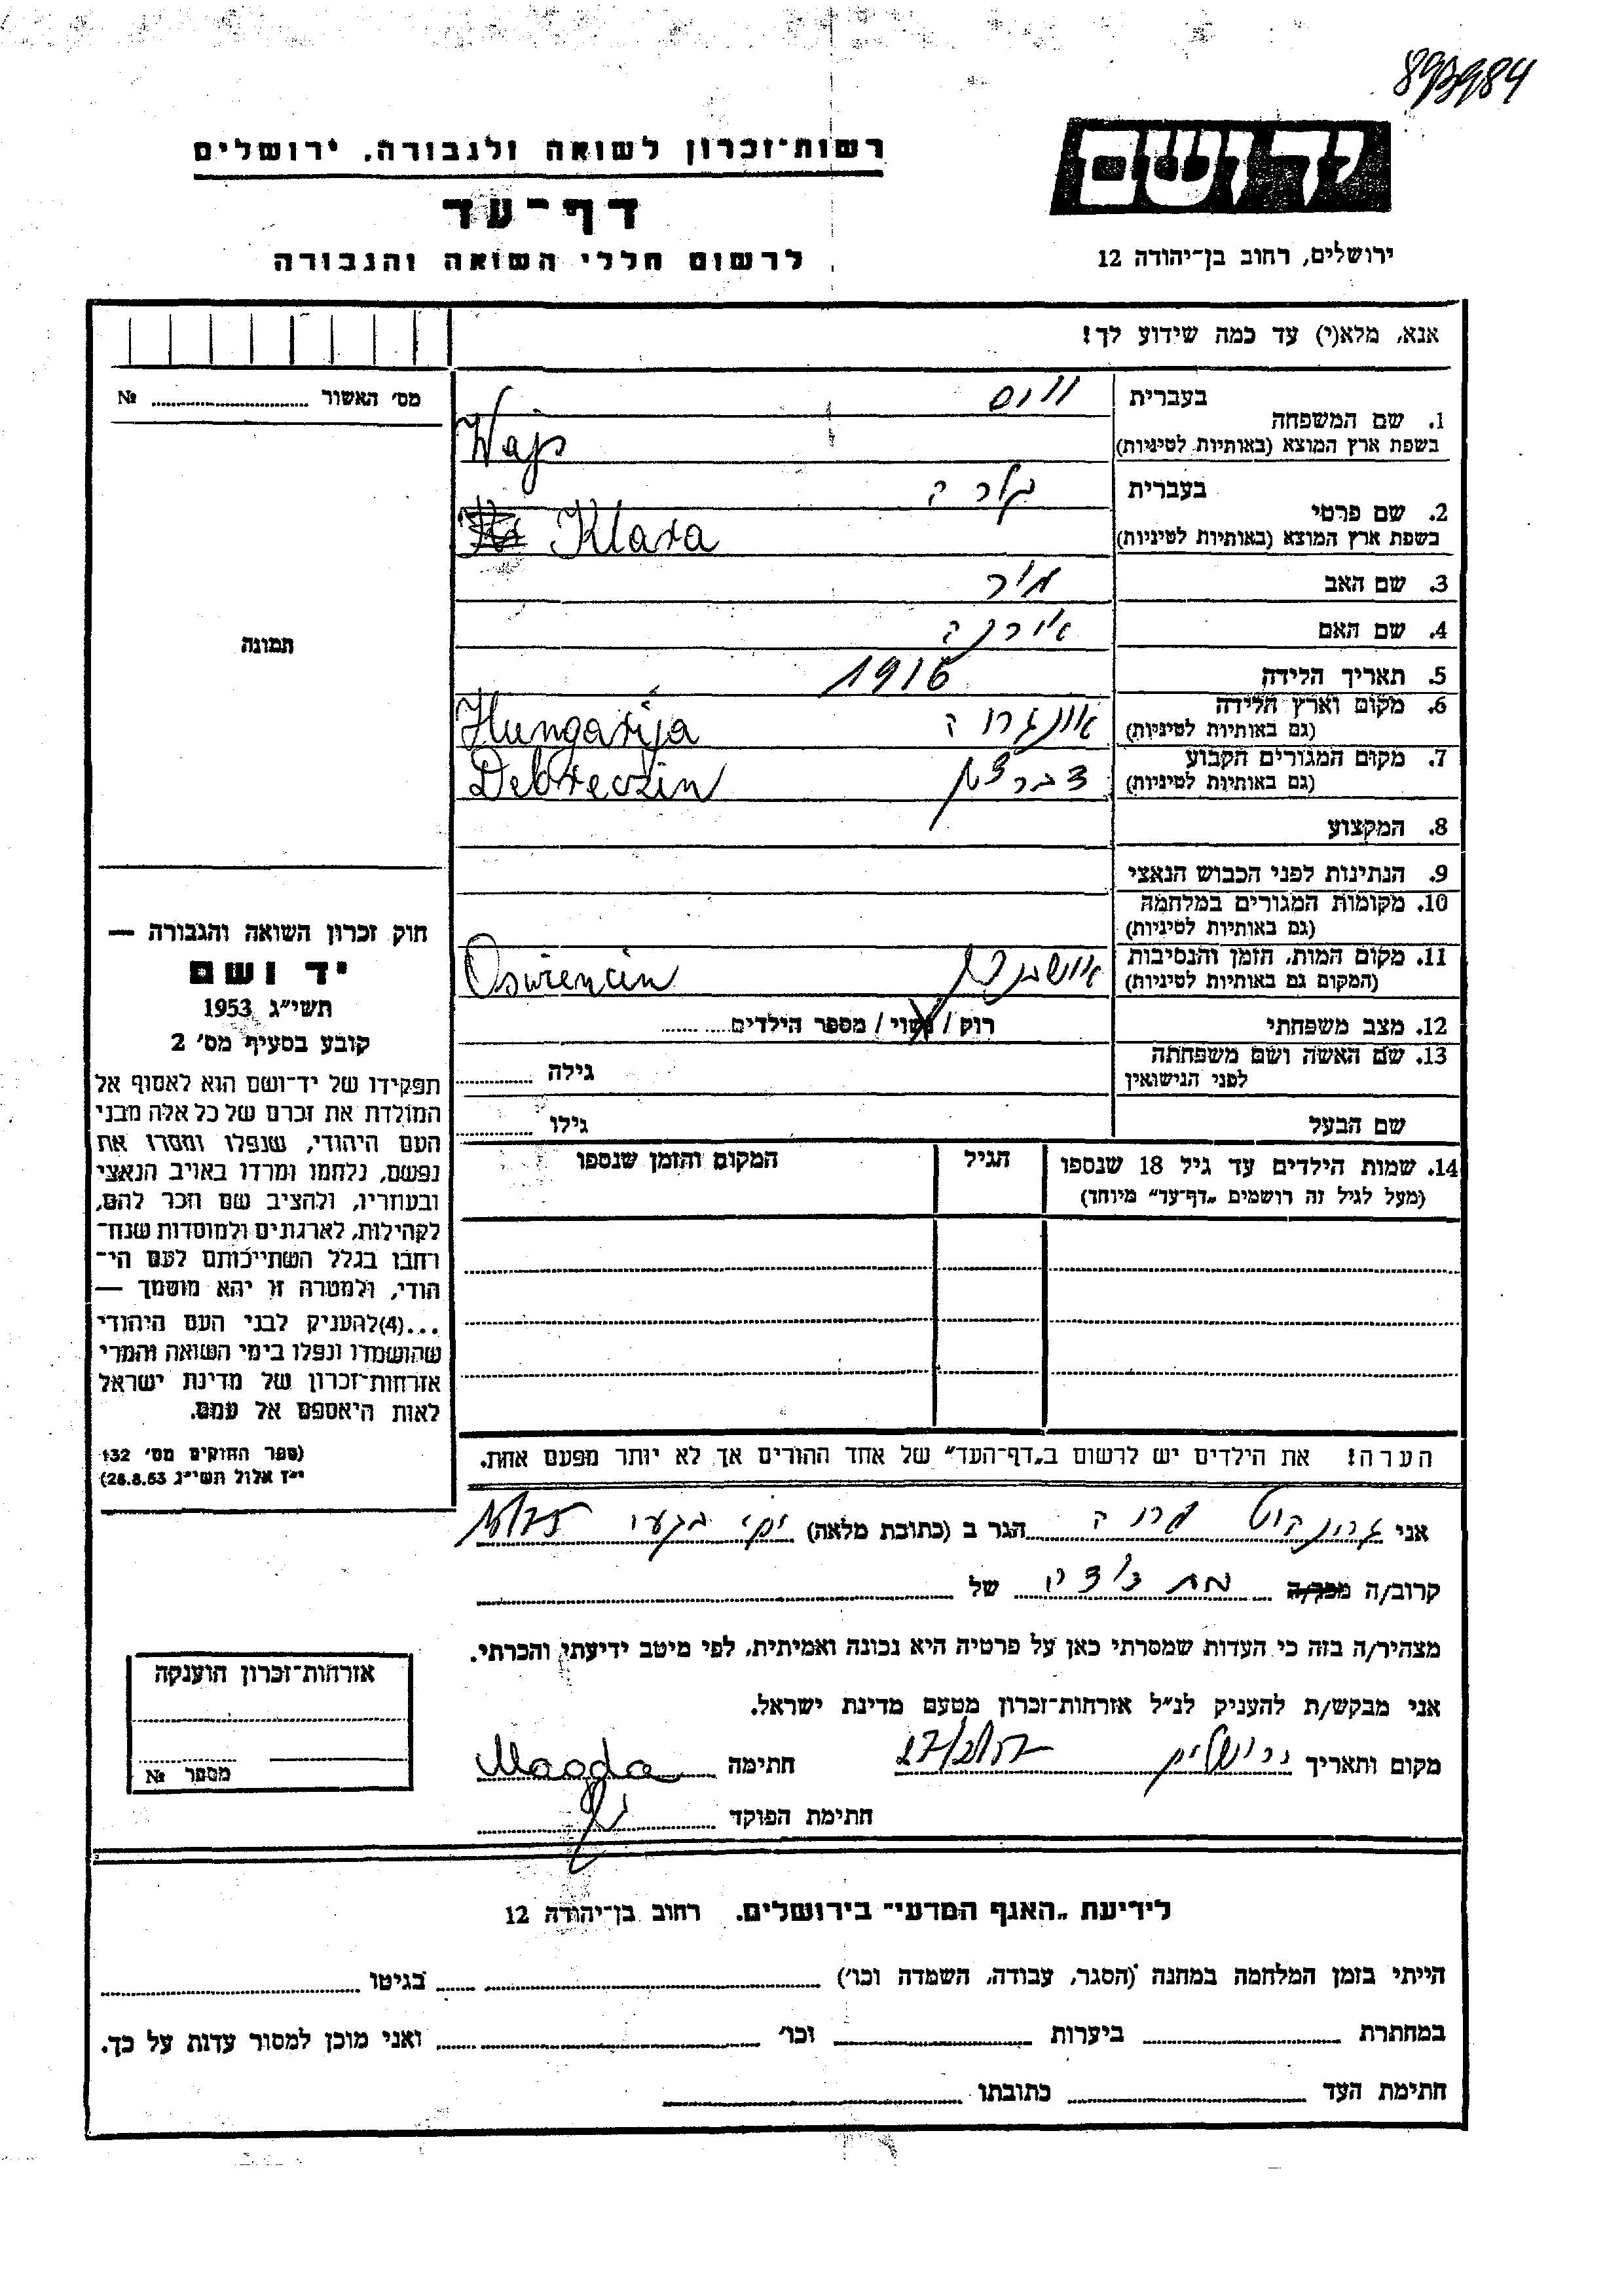 893984
רשות־זכרון לשואה ולגבורה, ירושלים
יד ושם
דף־עד
ירושלים, רחוב בן־יהודה 12
לרשום חללי השואה והגבורה
אנא, מלא(י) עד כמה שידוע לך!
מס' האשור ........ №
תמונה
1. שם המשפחה
בעברית
ווייס
בשפת ארץ המוצא (באותיות לטיניות)
Wajs
2. שם פרטי
בעברית
קלרה
בשפת ארץ המוצא (באותיות לטיניות)
Klara
3. שם האב
מיר
4. שם האם
אירנה
5. תאריך הלידה
1916
6. מקום וארץ הלידה
(גם באותיות לטיניות)
אונגריה Hungarija
7. מקום המגורים הקבוע
(גם באותיות לטיניות)
דברצין Debreczin
8. המקצוע
9. הנתינות לפני הכבוש הנאצי
10. מקומות המגורים במלחמה
(גם באותיות לטיניות)
11. מקום המות, הזמן והנסיבות
(המקום גם באותיות לטיניות)
אושביץ Oswiencin
12. מצב משפחתי
רוק / נשוי / מספר הילדים ........
13. שם האשה ושם משפחתה
לפני הנישואין
גילה ........
שם הבעל
גילו ........
14. שמות הילדים עד גיל 18 שנספו
(מעל לגיל זה רושמים „דף־עד" מיוחד)
הגיל
המקום והזמן שנספו
חוק זכרון השואה והגבורה —
יד ושם
תשי"ג 1953
קובע בסעיף מס' 2
תפקידו של יד־ושם הוא לאסוף אל
המולדת את זכרם של כל אלה מבני
העם היהודי, שנפלו ומסרו את
נפשם, נלחמו ומרדו באויב הנאצי
ובעוזריו, ולהציב שם וזכר להם,
לקהילות, לארגונים ולמוסדות שנח־
רחבו בגלל השתייכותם לעם הי־
הודי, ולמטרה זו יהא מוסמך —
...(4)להעניק לבני העם היהודי
שהושמדו ונפלו בימי השואה והמרי
אזרחות־זכרון של מדינת ישראל
לאות היאספם אל עמם.
(ספר החוקים מס' 132
י"ז אלול תשי"ג 28.8.53)
הערה! את הילדים יש לרשום ב„דף־העד" של אחד ההורים אך לא יותר מפעם אחת.
אני הגר ב (כתובת מלאה)
קרוב/ה מכר/ה של
מצהיר/ה בזה כי העדות שמסרתי כאן על פרטיה היא נכונה ואמיתית, לפי מיטב ידיעתי והכרתי.
אני מבקש/ת להעניק לנ"ל אזרחות־זכרון מטעם מדינת ישראל.
מקום ותאריך ירושלים חתימה Magda
חתימת הפוקד
אזרחות־זכרון הוענקה
מספר №
לידיעת „האגף המדעי" בירושלים, רחוב בן־יהודה 12
הייתי בזמן המלחמה במחנה (הסגר, עבודה, השמדה וכו') ........ בגיטו ........
במחתרת ........ ביערות ........ וכו' ........ ואני מוכן למסור עדות על כך.
חתימת העד ........ כתובתו ........